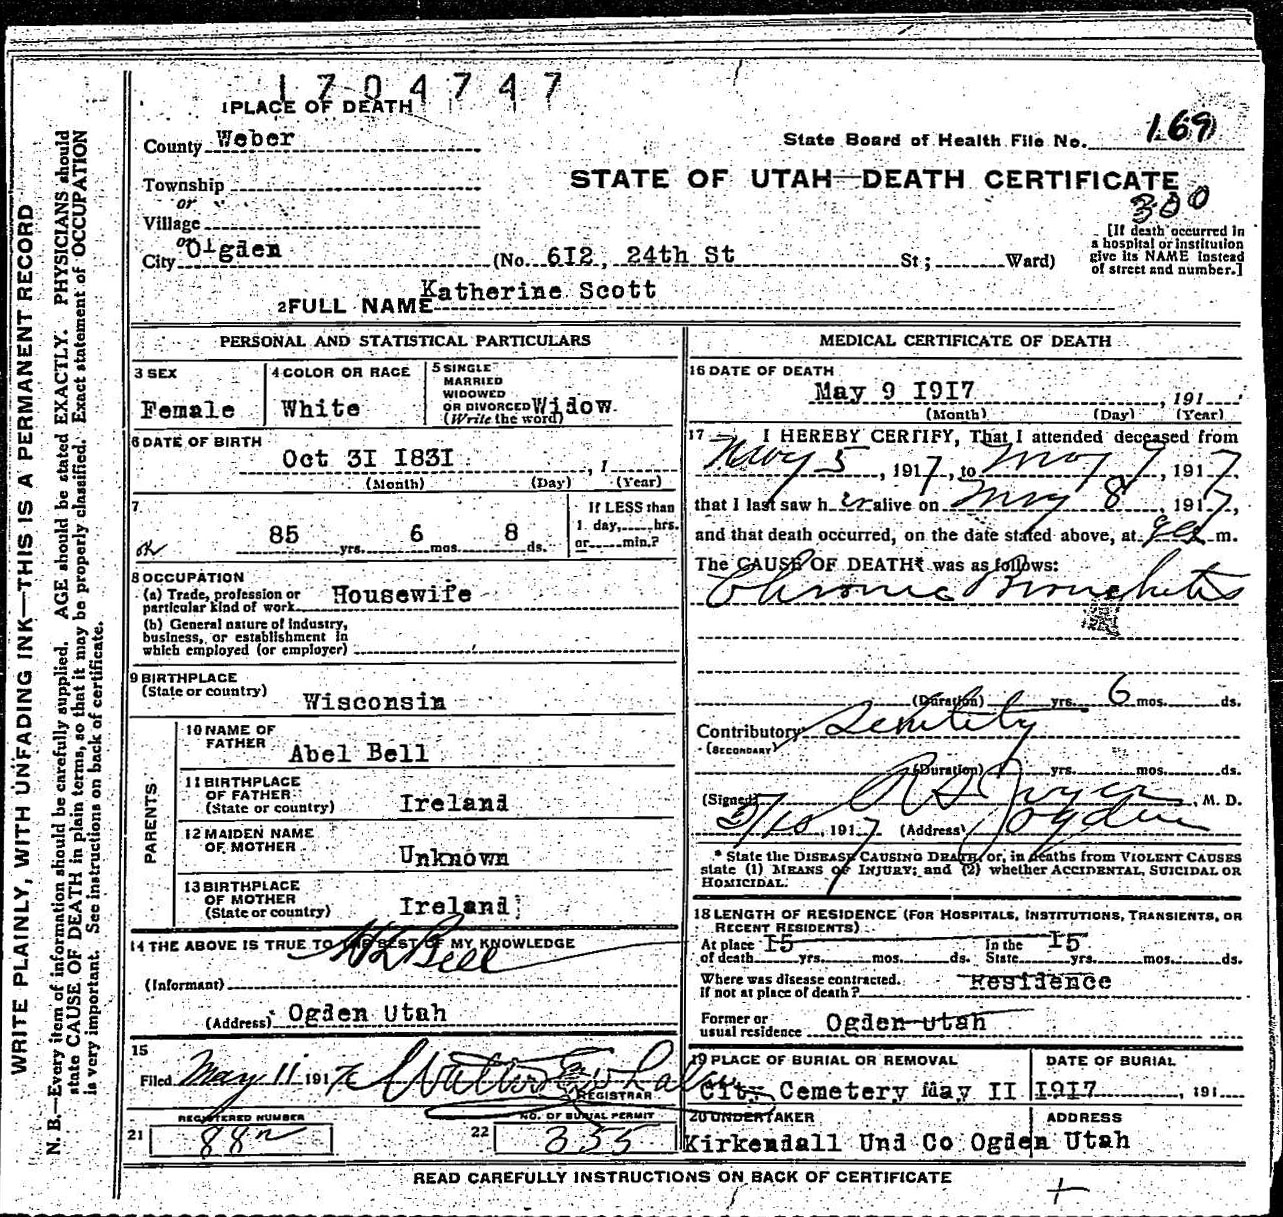 1704747
1 PLACE OF DEATH
County Weber
State Board of Health File No. 169
Township
STATE OF UTAH—DEATH CERTIFICATE
300
or
Village
or
City Ogden (No. 6I2, 24th St St; Ward)
[If death occurred in
a hospital or institution
give its NAME instead
of street and number.]
2 FULL NAME Katherine Scott
PERSONAL AND STATISTICAL PARTICULARS
3 SEX
Female
4 COLOR OR RACE
White
5 SINGLE
MARRIED
WIDOWED
OR DIVORCED Widow.
(Write the word)
6 DATE OF BIRTH
Oct 3I I83I , 1
(Month) (Day) (Year)
7
85 yrs. 6 mos. 8 ds.
If LESS than
1 day, hrs.
or min.?
8 OCCUPATION
(a) Trade, profession or
particular kind of work Housewife
(b) General nature of industry,
business, or establishment in
which employed (or employer)
9 BIRTHPLACE
(State or country)
Wisconsin
PARENTS
10 NAME OF
FATHER
Abel Bell
11 BIRTHPLACE
OF FATHER
(State or country) Ireland
12 MAIDEN NAME
OF MOTHER
Unknown
13 BIRTHPLACE
OF MOTHER
(State or country) Ireland
14 THE ABOVE IS TRUE TO THE BEST OF MY KNOWLEDGE
(Informant) Bell
(Address) Ogden Utah
15
Filed May 11 1917
REGISTRAR
REGISTERED NUMBER
21 88
NO. OF BURIAL PERMIT
22 355
MEDICAL CERTIFICATE OF DEATH
16 DATE OF DEATH
May 9 I9I7 , 191
(Month) (Day) (Year)
17 I HEREBY CERTIFY, That I attended deceased from
May 5 , 1917, to May 9, 1917,
that I last saw her alive on May 8, 1917,
and that death occurred, on the date stated above, at m.
The CAUSE OF DEATH* was as follows:
Chronic Bronchitis
(Duration) yrs. 6 mos. ds.
Contributory Senility
(SECONDARY)
(Duration) yrs. mos. ds.
(Signed) , M. D.
5/10, 1917 (Address) Ogden
* State the DISEASE CAUSING DEATH, or, in deaths from VIOLENT CAUSES
state (1) MEANS OF INJURY; and (2) whether ACCIDENTAL, SUICIDAL OR
HOMICIDAL.
18 LENGTH OF RESIDENCE (FOR HOSPITALS, INSTITUTIONS, TRANSIENTS, OR
RECENT RESIDENTS)
At place I5 In the I5
of death yrs. mos. ds. State yrs. mos. ds.
Where was disease contracted.
If not at place of death? Residence
Former or
usual residence Ogden Utah
19 PLACE OF BURIAL OR REMOVAL
DATE OF BURIAL
City Cemetery May II I9I7 , 191
20 UNDERTAKER
ADDRESS
Kirkendall Und Co Ogden Utah
READ CAREFULLY INSTRUCTIONS ON BACK OF CERTIFICATE
WRITE PLAINLY, WITH UNFADING INK—THIS IS A PERMANENT RECORD
N. B.—Every item of information should be carefully supplied. AGE should be stated EXACTLY. PHYSICIANS should
state CAUSE OF DEATH in plain terms, so that it may be properly classified. Exact statement of OCCUPATION
is very important. See instructions on back of certificate.